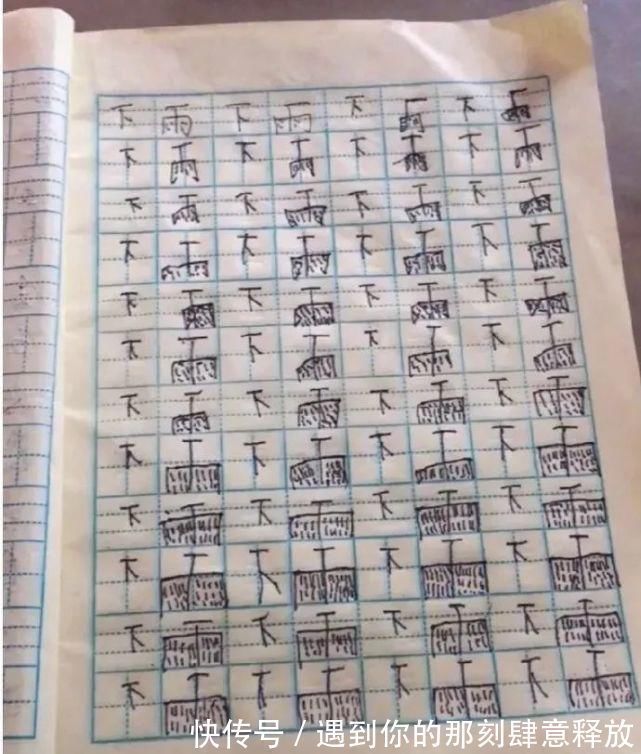 下雨下雨下雨下雨
下雨下雨下雨下雨
下雨下雨下雨下雨
下雨下雨下雨下雨
下雨下雨下雨下雨
下雨下雨下雨下雨
下雨下雨下雨下雨
下雨下雨下雨下雨
下雨下雨下雨下雨
下雨下雨下雨下雨
下雨下雨下雨下雨
下雨下雨下雨下雨
快传号 / 遇到你的那刻肆意释放